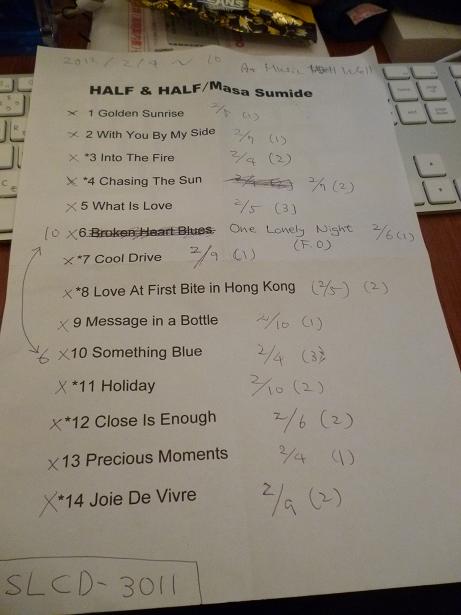 2012/2/4 ~ 10 At Music Well
HALF & HALF/Masa Sumide
× 1 Golden Sunrise 2/5 (1)
× 2 With You By My Side 2/9 (1)
× *3 Into The Fire 2/4 (2)
× *4 Chasing The Sun 2/9 (2)
× 5 What Is Love 2/5 (3)
10 × 6 Broken Heart Blues One Lonely Night 2/6 (1)
(F.O)
× *7 Cool Drive 2/9 (1)
× *8 Love At First Bite in Hong Kong (2/5) (2)
× 9 Message in a Bottle 2/10 (1)
6 × 10 Something Blue 2/4 (3)
× *11 Holiday 2/10 (2)
× *12 Close Is Enough 2/6 (2)
× 13 Precious Moments 2/4 (1)
× *14 Joie De Vivre 2/9 (2)
SLCD-3011